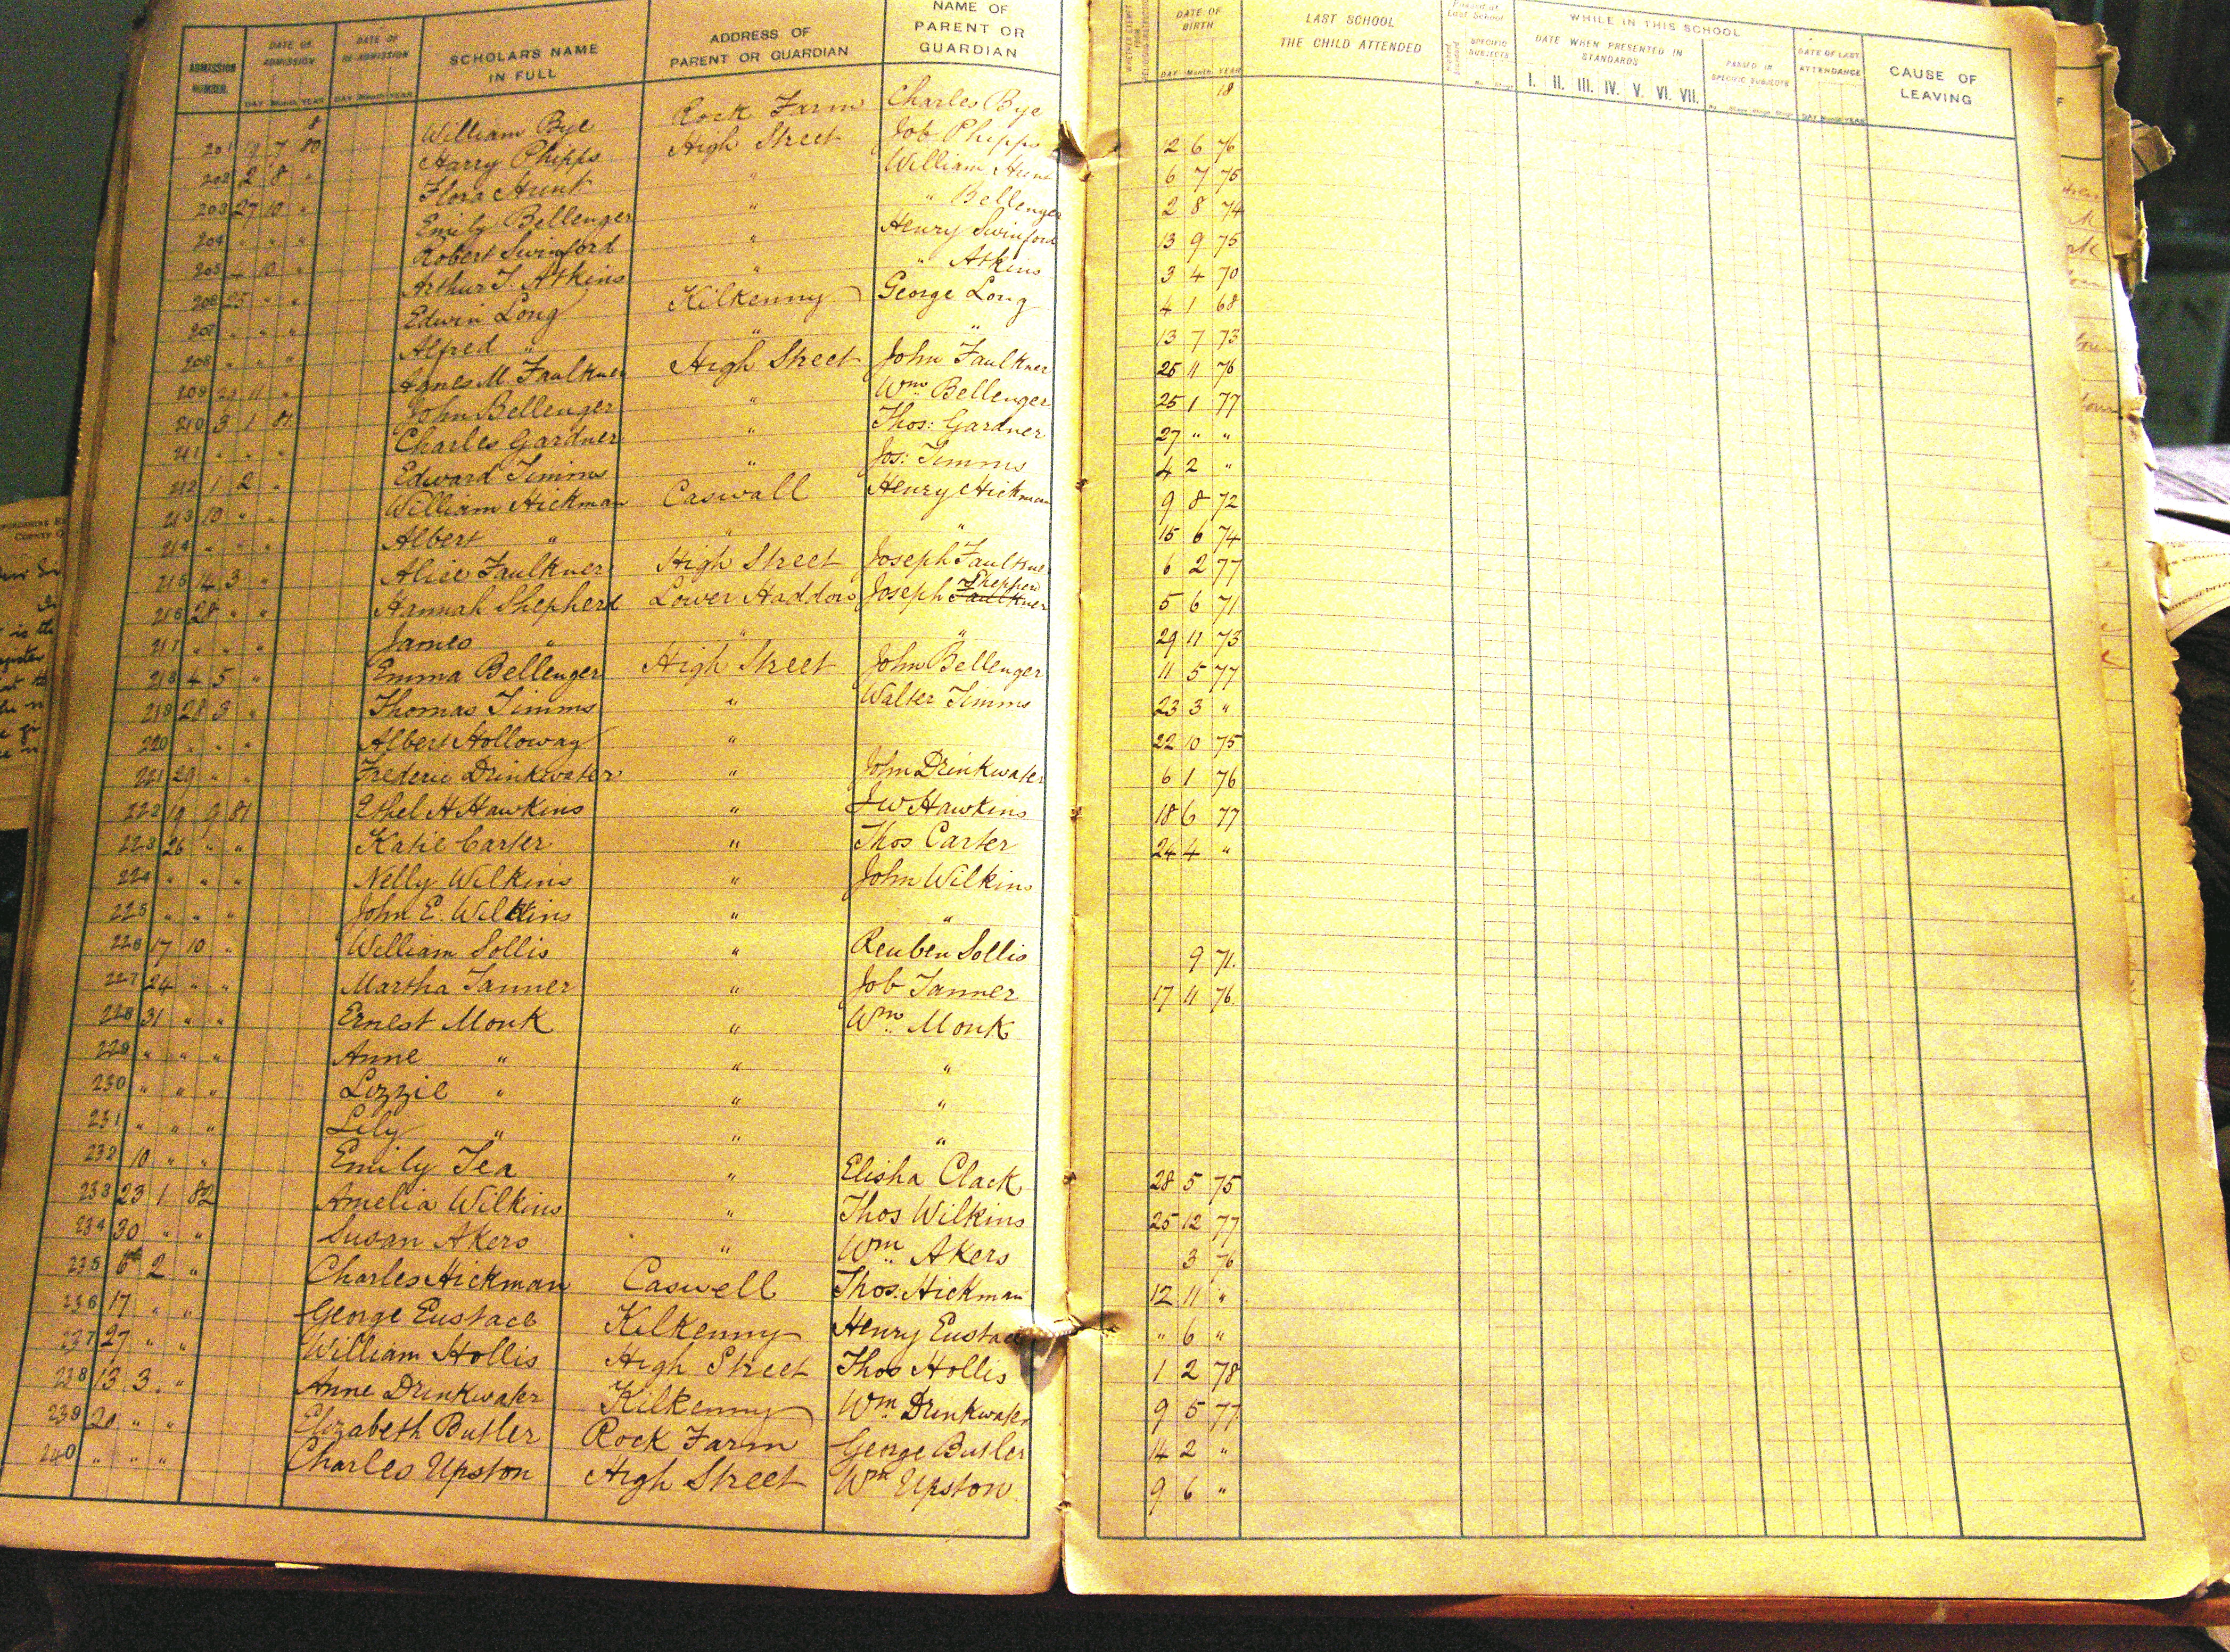 ADMISSION NUMBER. DATE OF ADMISSION DATE OF RE-ADMISSION SCHOLAR'S NAME IN FULL ADDRESS OF PARENT OR GUARDIAN NAME OF PARENT OR GUARDIAN DATE OF BIRTH LAST SCHOOL THE CHILD ATTENDED SPECIFIC SUBJECTS WHILE IN THIS SCHOOL DATE WHEN PRESENTED IN STANDARDS PASSED IN SPECIFIC SUBJECTS DATE OF LAST ATTENDANCE CAUSE OF LEAVING
DAY Month YEAR DAY Month YEAR DAY Month YEAR I. II. III. IV. V. VI. VII. DAY Month YEAR
18
201 19 7 80 William Bye Rock Farm Charles Bye 12 6 76
202 2 8 " Harry Phipps High Street Job Phipps 6 7 75
203 27 10 " Flora Hunt " William Hunt 2 8 74
204 " " " Emily Bellenger " " Bellenger 13 9 75
205 4 10 " Robert Swinford " Henry Swinford 3 4 70
206 25 " " Arthur J. Atkins " " Atkins 4 1 68
207 " " " Edwin Long Kilkenny George Long 13 7 73
208 " " " Alfred " " " 25 11 76
209 29 11 " Agnes M Faulkner High Street John Faulkner 25 1 77
210 3 1 81 John Bellenger " Wm Bellenger 27 " "
211 " " " Charles Gardner " Thos: Gardner 4 2 "
212 1 2 " Edward Timms " Jos: Timms 9 8 72
213 10 " " William Hickman Caswall Henry Hickman 15 6 74
214 " " " Albert " " " 6 2 77
215 14 3 " Alice Faulkner High Street Joseph Faulkner 5 6 71
216 28 " " Hannah Shepherd Lower Haddon Joseph Faulkner Shepherd 29 11 73
217 " " " James " " " 11 5 77
218 4 5 " Emma Bellenger High Street John Bellenger 23 3 "
219 23 5 " Thomas Timms " Walter Timms 22 10 75
220 " " " Albert Holloway " 6 1 76
221 29 " " Frederic Drinkwater " John Drinkwater 18 6 77
222 19 9 81 Ethel H Hawkins " J W Hawkins 24 4 "
223 26 " " Katie Carter " Thos Carter
224 " " " Nelly Wilkins " John Wilkins
225 " " " John E. Wilkins " " 9 71.
226 17 10 " William Sollis " Reuben Sollis 17 11 76.
227 24 " " Martha Tanner " Job Tanner
228 31 " " Ernest Monk " Wm Monk
229 " " " Anne " " "
230 " " " Lizzie " " "
231 " " " Lily " " "
232 10 " " Emily Tea " Elisha Clack 28 5 75
233 23 1 82 Amelia Wilkins " Thos Wilkins 25 12 77
234 30 " " Susan Akers " Wm Akers 3 76
235 6 2 " Charles Hickman Caswell Thos. Hickman 12 11 "
236 17 " " George Eustace Kilkenny Henry Eustace " 6 "
237 27 " " William Hollis High Street Thos Hollis 1 2 78
238 13 3 " Anne Drinkwater Kilkenny Wm Drinkwater 9 5 77
239 20 " " Elizabeth Butler Rock Farm George Butler 14 2 "
240 " " " Charles Upston High Street Wm Upston 9 6 "